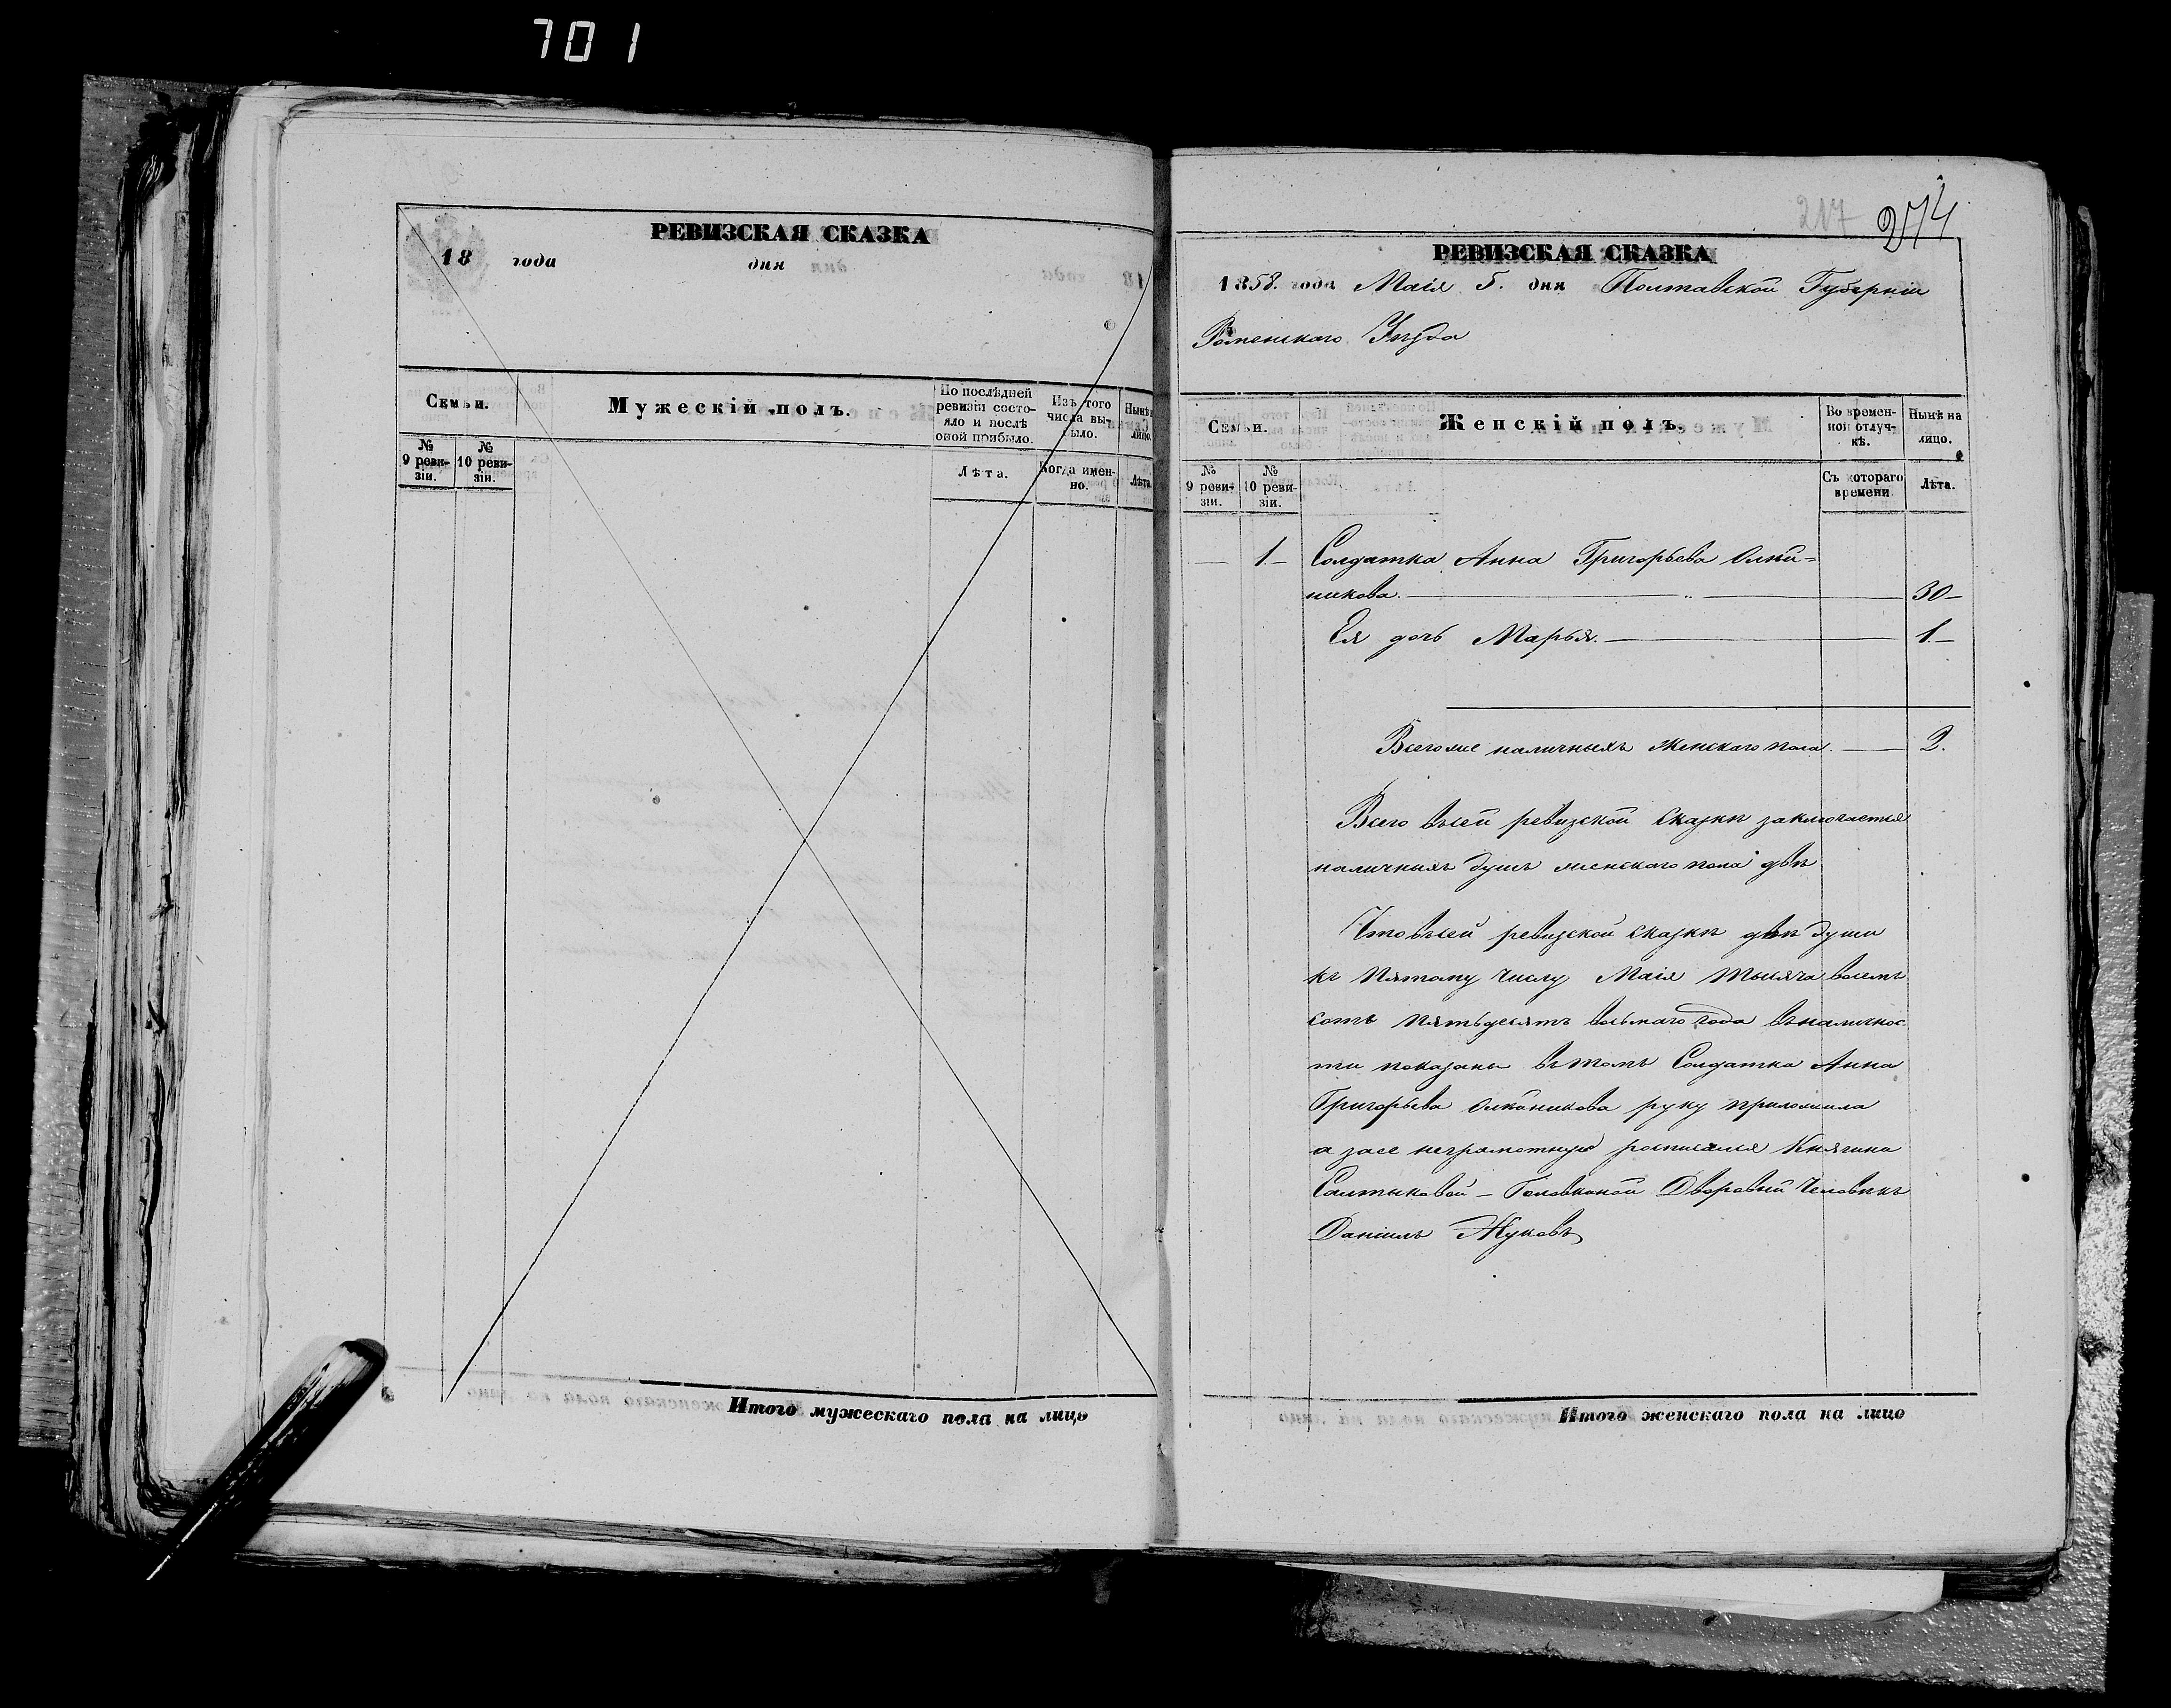 701
РЕВИЗСКАЯ СКАЗКА
18 года дня
Семьи.
Мужескій полъ.
По послѣдней ревизіи состояло и послѣ оной прибыло.
Изъ того числа выбыло.
Нынѣ лицо.
№ 9 ревизіи.
№ 10 ревизіи.
Лѣта.
Когда именно.
Лѣта.
Итого мужескаго пола на лицо
217 274
РЕВИЗСКАЯ СКАЗКА
1858. года Маія 5. дня Полтавской Губерніи
Роменскаго Уѣзда
Семьи.
Женскій полъ.
Во временной отлучкѣ.
Нынѣ на лицо.
№ 9 ревизіи.
№ 10 ревизіи.
Съ котораго времени
Лѣта.
1. Солдатка Анна Григорьева Олѣй=
никова. 30
Ея дочь Марья. 1.
Всего же наличныхъ женскаго пола. 2.
Всего всей ревизской сказкѣ заключается
наличныхъ душъ женскаго пола двѣ
Что въсей ревизской сказкѣ двѣ души
къ пятому числу Маія тысяча восемь
сотъ пятьдесятъ восьмаго года въналичнос
ти показаны вътомъ Солдатка Анна
Григорьева руку приложила
а заее неграмотную росписался Княгини
Салтыковой - Головкиной Дворовый человѣкъ
Даніилъ Жуковъ
Итого женскаго пола на лицо